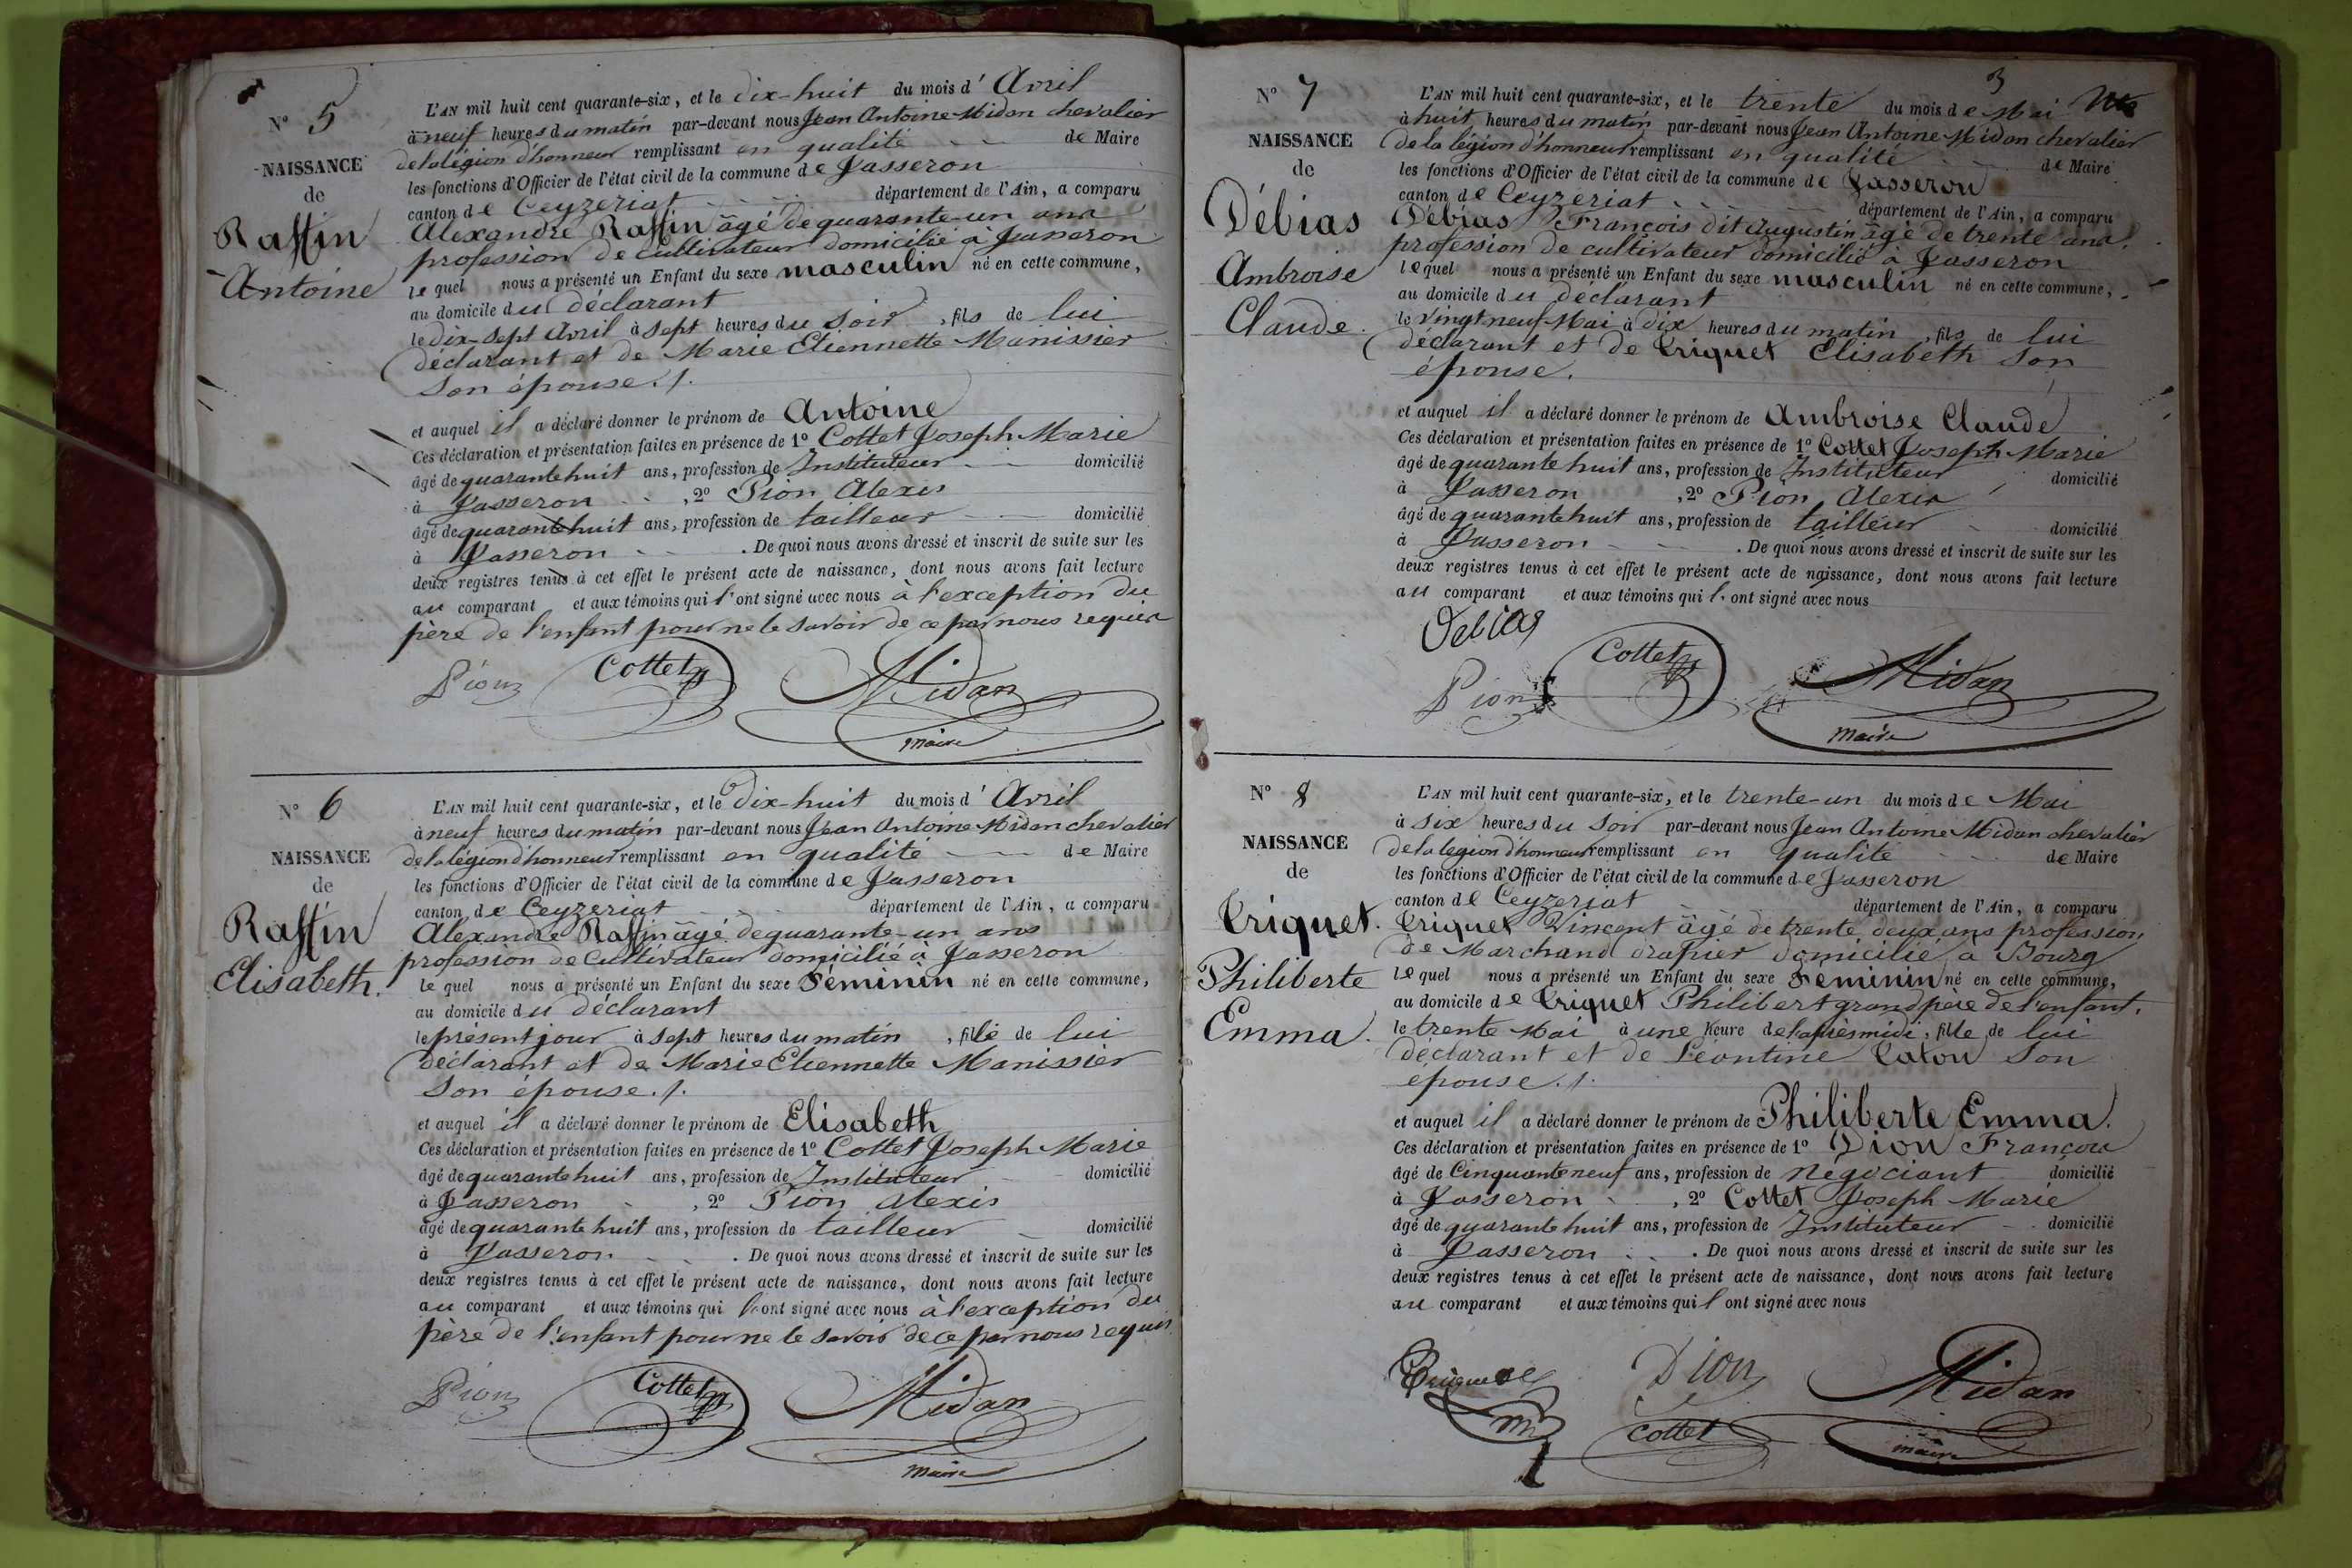 N° 5
NAISSANCE
de
Raffin
Antoine
L'AN mil huit cent quarante-six, et le dix-huit du mois d' Avril
à neuf heures du matin par-devant nous Jean Antoine Midan chevalier
de la légion d'honneur remplissant en qualité de Maire
les fonctions d'Officier de l'état civil de la commune de Jasseron
canton de Ceyzeriat département de l'Ain, a comparu
Alexandre Raffin âgé de quarante-un ans
profession de cultivateur domicilié à Jasseron
lequel nous a présenté un Enfant du sexe masculin né en cette commune,
au domicile du déclarant
le dix-sept Avril à sept heures du soir, fils de lui
déclarant et de Marie Etiennette Manissier
son épouse./.
et auquel il a déclaré donner le prénom de Antoine
Ces déclaration et présentation faites en présence de 1° Cottet Joseph Marie
âgé de quarante huit ans, profession de Instituteur domicilié
à Jasseron, 2° Pion Alexis
âgé de quarante huit ans, profession de tailleur domicilié
à Jasseron. De quoi nous avons dressé et inscrit de suite sur les
deux registres tenus à cet effet le présent acte de naissance, dont nous avons fait lecture
au comparant et aux témoins qui l'ont signé avec nous à l'exception du
père de l'enfant pour ne le savoir de ce par nous requis
Pion Cottet Midan
maire
N° 6
NAISSANCE
de
Raffin
Elisabeth.
L'AN mil huit cent quarante-six, et le dix-huit du mois d' Avril
à neuf heures du matin par-devant nous Jean Antoine Midan chevalier
de la légion d'honneur remplissant en qualité de Maire
les fonctions d'Officier de l'état civil de la commune de Jasseron
canton de Ceyzeriat département de l'Ain, a comparu
Alexandre Raffin âgé de quarante-un ans
profession de Cultivateur domicilié à Jasseron
lequel nous a présenté un Enfant du sexe féminin né en cette commune,
au domicile du déclarant
le présent jour à sept heures du matin, fille de lui
déclarant et de Marie Etiennette Manissier
son épouse./.
et auquel il a déclaré donner le prénom de Elisabeth
Ces déclaration et présentation faites en présence de 1° Cottet Joseph Marie
âgé de quarante huit ans, profession de Instituteur domicilié
à Jasseron, 2° Pion Alexis
âgé de quarante huit ans, profession de tailleur domicilié
à Jasseron. De quoi nous avons dressé et inscrit de suite sur les
deux registres tenus à cet effet le présent acte de naissance, dont nous avons fait lecture
au comparant et aux témoins qui l'ont signé avec nous à l'exception du
père de l'enfant pour ne le savoir de ce par nous requis
Pion Cottet Midan
maire
3
N° 7
NAISSANCE
de
Débias
Ambroise
Claude.
L'AN mil huit cent quarante-six, et le trente du mois de Mai
à huit heures du matin par-devant nous Jean Antoine Midan chevalier
de la légion d'honneur remplissant en qualité de Maire
les fonctions d'Officier de l'état civil de la commune de Jasseron
canton de Ceyzeriat département de l'Ain, a comparu
Débias François dit Augustin âgé de trente ans,
profession de cultivateur domicilié à Jasseron
lequel nous a présenté un Enfant du sexe masculin né en cette commune,
au domicile du déclarant
le vingt neuf Mai à dix heures du matin, fils de lui
déclarant et de Criquet Elisabeth son
épouse.
et auquel il a déclaré donner le prénom de Ambroise Claude
Ces déclaration et présentation faites en présence de 1° Cottet Joseph Marie
âgé de quarante huit ans, profession de Instituteur domicilié
à Jasseron, 2° Pion Alexis
âgé de quarante huit ans, profession de tailleur domicilié
à Jasseron. De quoi nous avons dressé et inscrit de suite sur les
deux registres tenus à cet effet le présent acte de naissance, dont nous avons fait lecture
au comparant et aux témoins qui l'ont signé avec nous
Debias
Pion Cottet Midan
maire
N° 8
NAISSANCE
de
Criquet.
Philiberte
Emma.
L'AN mil huit cent quarante-six, et le trente-un du mois de Mai
à six heures du soir par-devant nous Jean Antoine Midan chevalier
de la légion d'honneur remplissant en qualité de Maire
les fonctions d'Officier de l'état civil de la commune de Jasseron
canton de Ceyzeriat département de l'Ain, a comparu
Criquet Vincent âgé de trente deux ans profession
de Marchand drapier domicilié à Bourg
lequel nous a présenté un Enfant du sexe féminin né en cette commune,
au domicile de Criquet Philibert grand père de l'enfant.
le trente Mai à une heure de l'après midi, fille de lui
déclarant et de Léontine Caton son
épouse./.
et auquel il a déclaré donner le prénom de Philiberte Emma.
Ces déclaration et présentation faites en présence de 1° Dion François
âgé de Cinquante neuf ans, profession de négociant domicilié
à Jasseron, 2° Cottet Joseph Marie
âgé de quarante huit ans, profession de Instituteur domicilié
à Jasseron. De quoi nous avons dressé et inscrit de suite sur les
deux registres tenus à cet effet le présent acte de naissance, dont nous avons fait lecture
au comparant et aux témoins qui l'ont signé avec nous
Criquet Dion Midan
Cottet maire